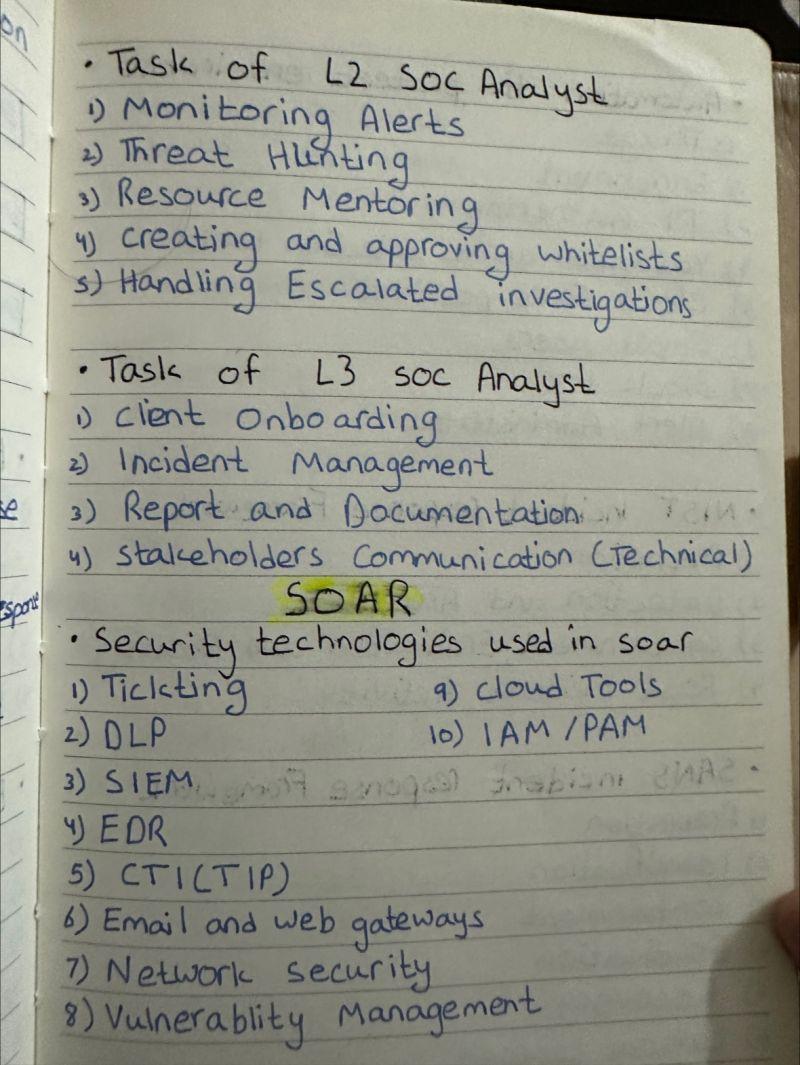 • Task of L2 SOC Analyst
1) Monitoring Alerts
2) Threat Hunting
3) Resource Mentoring
4) creating and approving whitelists
5) Handling Escalated investigations
• Task of L3 SOC Analyst
1) Client Onboarding
2) Incident Management
3) Report and Documentation
4) Stakeholders Communication (Technical)
SOAR
• Security technologies used in soar
1) Tickting
2) DLP
3) SIEM
4) EDR
5) CTI(TIP)
6) Email and web gateways
7) Network security
8) Vulnerablity Management
9) Cloud Tools
10) IAM / PAM